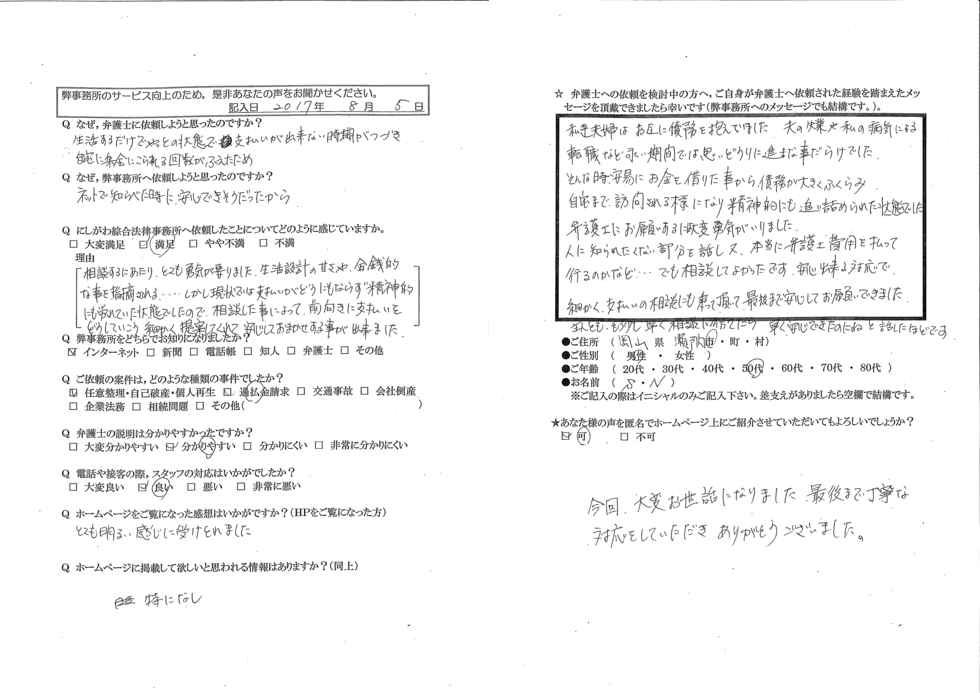 弊事務所のサービス向上のため，是非あなたの声をお聞かせください。
記入日 2017年 8月 5日
Q なぜ，弁護士に依頼しようと思ったのですか？
生活するだけでやっとの状態で 支払いが出来ない時期がつづき
自宅に集金にこられる回数がふえたため
Q なぜ，弊事務所へ依頼しようと思ったのですか？
ネットで知らべた時に，安心できそうだったから
Q にしがわ綜合法律事務所へ依頼したことについてどのように感じていますか。
□ 大変満足 ☑ 満足 □ やや不満 □ 不満
理由
相談するにあたり、とても勇気が要りました。生活設計の甘さや、金銭的
な事を指摘される‥‥しかし現状では支払いがどうにもならず精神的
にも疲れていた状態でしたので、相談した事によって、前向きに支払いを
どうしていこう 細かく提案してくれて 安心しておまかせする事が出来ました。
Q 弊事務所をどちらでお知りになりましたか？
☑ インターネット □ 新聞 □ 電話帳 □ 知人 □ 弁護士 □ その他
Q ご依頼の案件は，どのような種類の事件でしたか？
☑ 任意整理・自己破産・個人再生 ☑ 過払金請求 □ 交通事故 □ 会社倒産
□ 企業法務 □ 相続問題 □ その他( )
Q 弁護士の説明は分かりやすかったですか？
□ 大変分かりやすい ☑ 分かりやすい □ 分かりにくい □ 非常に分かりにくい
Q 電話や接客の際，スタッフの対応はいかがでしたか？
□ 大変良い ☑ 良い □ 悪い □ 非常に悪い
Q ホームページをご覧になった感想はいかがですか？(HPをご覧になった方)
とても明るい感じに受けとれました
Q ホームページに掲載して欲しいと思われる情報はありますか？(同上)
特になし
☆ 弁護士への依頼を検討中の方へ，ご自身が弁護士へ依頼された経験を踏まえたメッ
セージを頂戴できましたら幸いです(弊事務所へのメッセージでも結構です。)。
私達夫婦は お互に債務を抱えていました 夫の休業や私の病気による
転職など 永い期間では思いどうりに進まな事だらけでした。
そんな時 安易に お金を借りた事から 債務が大きくふくらみ
自宅まで訪問される様になり 精神的にも追い詰められた状態でした
弁護士にお願いするには大変勇気がいりました。
人に知られたくない部分を話し 又、本当に弁護士費用を払って
行けるのかなど‥‥でも相談してよかったです。安心出来る対応で、
細かく、支払いの相談にも乗って頂いて 最後まで安心してお願いできました。
もっと早く相談に 早く安心できたのにね と話したほどです
●ご住所 （ 岡山 県 瀬戸内 市・町・村）
●ご性別 （ 男性 ・ 女性 ）
●ご年齢 （ 20代 ・ 30代 ・ 40代 ・ 50代 ・ 60代 ・ 70代 ・ 80代 ）
●お名前 （ S・N ）
※ご記入の際はイニシャルのみご記入下さい。差支えがありましたら空欄で結構です。
★あなた様の声を匿名でホームページ上にご紹介させていただいてもよろしいでしょうか？
☑ 可 □ 不可
今回、大変お世話になりました 最後まで丁寧な
対応をしていただき ありがとうございました。